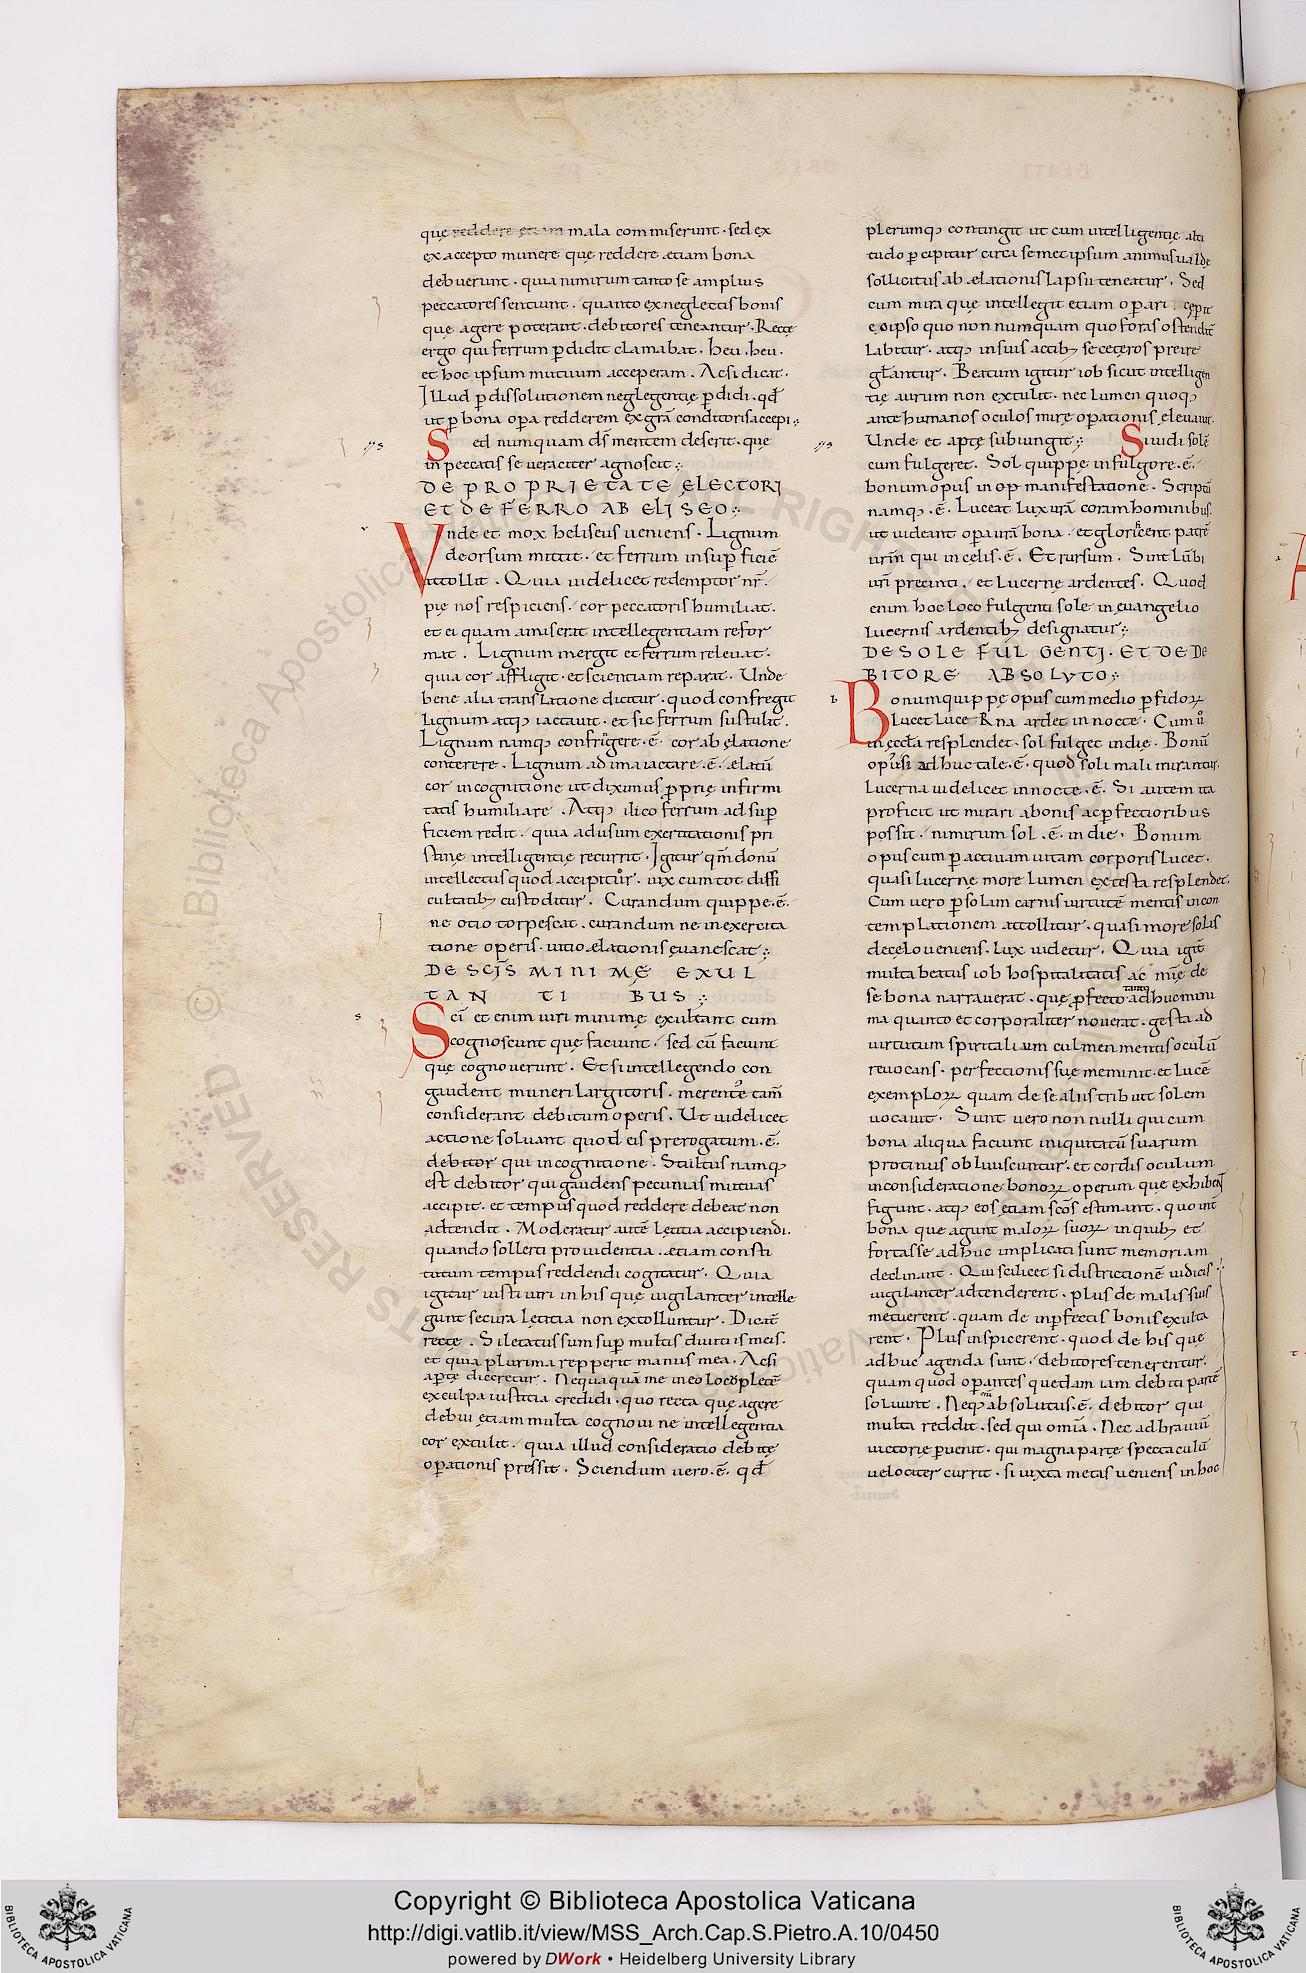 quę reddere etiam mala commiserunt · sed ex
ex accepto munere quę reddere ætiam bona
debuerunt · quia nimirum tanto se amplius
peccatores sentiunt · quanto ex neglectis bonis
quę agere poterant · debitores teneantur · Rectę
ergo qui ferrum p̄didit clamabat · heu · heu ·
et hoc ipsum mutuum acceperam · Ac si dicat ·
Illud p̄ dissolutionem neglegentię p̄didi · qđ
ut p̄ bona op̄a redderem ex gr̄a conditoris accepi ·:
Sed numquam d̄s mentem deserit · quę
in peccatis se veraciter agnoscit ·:
DE PROPRIETATE ĘLECTORI
ET DE FERRO AB ELISEO ·:
Vnde et mox heliseus ueniens · Lignum
deorsum mittit · et ferrum in sup̄ficiē
attollit · Quia uidelicet redemptor nr̄ ·
pię nos respiciens · cor peccatoris humiliat ·
et ei quam amiserat intellegentiam refor
mat · Lignum mergit et ferrum releuat ·
quia cor affligit · et scientiam reparat · Unde
bene alia translatione dicitur · quod confregit
lignum atq; iactauit · et sic ferrum sustulit ·
Lignum namq; confringere · ē · cor ab ęlatione
conterere · Lignum ad ima iactare · ē · ælatū
cor in cognitione ut diximus p̄prię infirmi
tatis humiliare · Atq; ilico ferrum ad sup̄
ficiem redit · quia ad usum exercitationis pri
stinę intelligentię recurrit · Igitur qm̄ donū
intellectus quod accipitur · uix cum tot diffi
cultatib; custoditur · Curandum quippe · ē ·
ne otio torpescat · curandum ne in exercita
tione operis · uitio ælationis euanescat ·:
DE SCĪS MINIMĘ EXUL
TANTIBUS ·:
Scī et enim uiri minimę exultant cum
cognoscunt quę faciunt · sed cū faciunt
quę cognouerunt · Et si intellegendo con
gaudent muneri largitoris · merent̄e tam̄
considerant debitum operis · Ut uidelicet
actione soluant quod eis prerogatum · ē ·
debitor qui in cognitione · Stultus namq;
est debitor qui gaudens pecunias mutuas
accipit · et tempus quod reddere debeat non
adtendit · Moderatur autē lętitia accipiendi ·
quando sollerti prouidentia · ætiam consti
tutum tempus reddendi cogitatur · Quia
igitur iusti uiri in his quę uigilanter intelle
gunt secura lętitia non extolluntur · Dicat̄
recte · Si letatus sum sup̄ multis diuitiis meis ·
et quia plurima repperit manus mea · Ac si
ap̄tę diceretur · Nequaquā me ideo locopletē
ex culpa iustitia credidi · quo recta quę agere
debui etiam multa cognoui ne intellegentia
cor extulit · quia illud consideratio debitę
op̄ationis pressit · Sciendum uero · ē · qđ
plerumq; contingit ut cum intelligentię alti
tudo p̄cipitur circa semetipsum animus ualde
sollicitus ab ælationis lapsu teneatur · Sed
cum mira quę intellegit etiam op̄ari cęperit
eo ipso quo non numquam quo foras ostendit̄
labitur · atq; in suis actib; se ceteros preire
gl̄antur · Beatum igitur iob sicut intelligen
tię aurum non extulit · nec lumen quoq;
ante humanos oculos mirę op̄ationis eleuauit ·
Unde et aptę subiungit ·: Si uidi solē
cum fulgeret · Sol quippe in fulgore · ē ·
bonum opus in op̄ manifestatione · Scriptū
namq; · ē · Luceat lux ur̄a coram hominibus ·
ut uideant op̄a ur̄a bona · et glorificent patrē
ur̄m qui in cęlis · ē · Et rursum · Sint lūbi
ur̄i precincti · et lucernę ardentes · Quod
enim hoc loco fulgenti sole in euangelio
lucernis ardentib; designatur ·:
DE SOLE FULGENTI · ET DE DE
BITORE ABSOLVTO ·:
Bonum quippe opus cum medio p̄fidoꝝ
lucet lucerna ardet in nocte · Cum ů
in eccl̄a resplendet · sol fulget in die · Bonū
opus si adhuc tale · ē · quod soli mali mirantur ·
Lucerna uidelicet in nocte · ē · Si autem ita
proficit ut mirari a bonis ac p̄fectioribus
possit · nimirum sol · ē · in die · Bonum
opus cum p̄ actiuam uitam corporis lucet ·
quasi lucerne more lumen ex testa resplendet ·
Cum uero p̄ solam carnis uirtutē mentis in con
templationem attollitur · quasi more solis
de cęlo ueniens · lux uidetur · Quia igit̄
multa beatus iob hospitalitatis ac mię de
se bona narrauerat · quę p̄fecto tanto adhuc mini
ma quanto et corporaliter nouerat · gesta ad
uirtutum spiritalium culmen mentis oculū
reuocans · perfectionis suę meminit · et lucē
exemploꝝ quam de se aliis tribuit solem
uocauit · Sunt uero non nulli qui cum
bona aliqua faciunt iniquitatū suarum
protinus obliuiscuntur · et cordis oculum
in consideratione bonoꝝ operum quę exhibent
figunt · atq; eo se etiam scōs estimant · quo int̄
bona quę agunt maloꝝ suoꝝ in quib; et
fortasse adhuc implicati sunt memoriam
declinant · Qui scilicet si districtionē iudicis
uigilanter adtenderent · plus de malis suis
metuerent · quam de inp̄fectis bonis exulta
rent · Plus inspicerent · quod de his quę
adhuc agenda sunt · debitores tenerentur ·
quam quod op̄antes quędam iam debiti partē
soluunt · Neq; enim absolutus · ē · debitor qui
multa reddit · sed qui omīa · Nec ad brauiū
uictorię p̄uenit · qui magna parte spectaculū
uelociter currit · si iuxta metas ueniens in hoc
Copyright © Biblioteca Apostolica Vaticana
http://digi.vatlib.it/view/MSS_Arch.Cap.S.Pietro.A.10/0450
powered by DWork • Heidelberg University Library